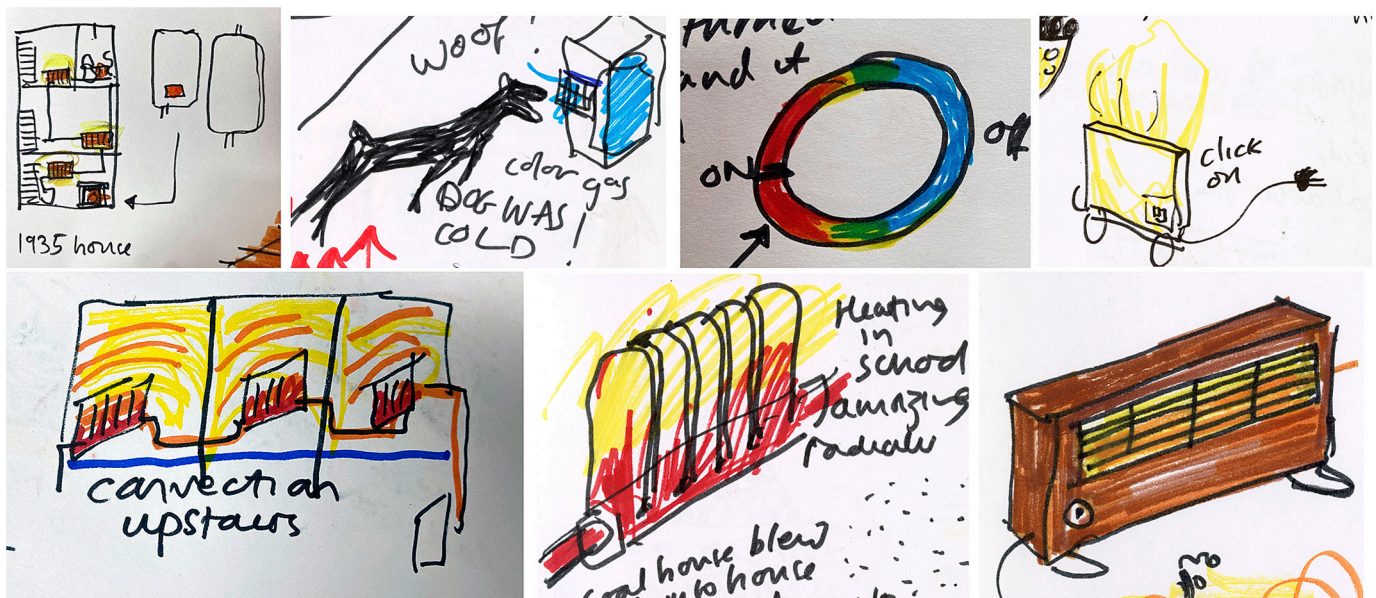 1935 house
woof !
color gas
DOG WAS
COLD !
turned
and it
ON
off
click
on
convection
upstairs
Heating
in
school
amazing
radiator
coal house blend
into house